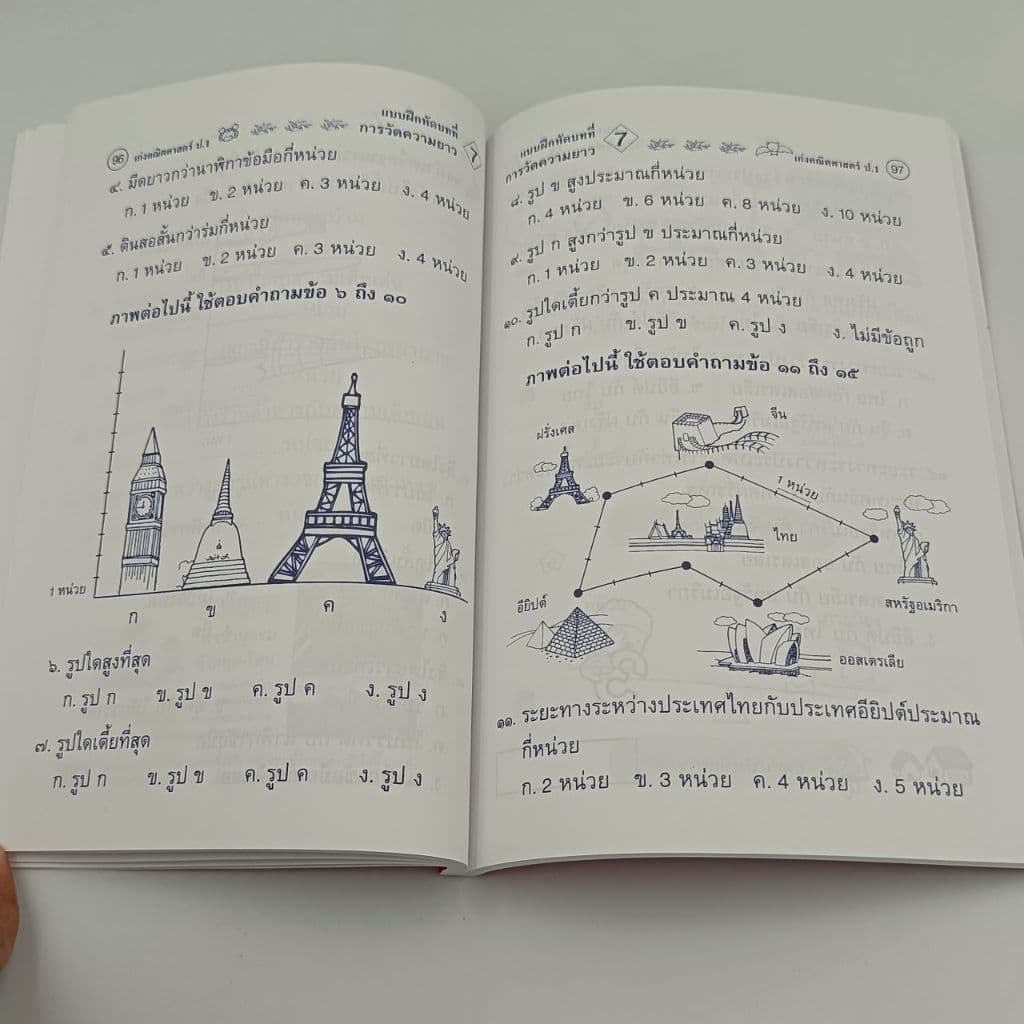 96 เก่งคณิตศาสตร์ ป.1
แบบฝึกหัดบทที่ 7
การวัดความยาว
๔. มีดยาวกว่านาฬิกาข้อมือกี่หน่วย
ก. 1 หน่วย ข. 2 หน่วย ค. 3 หน่วย ง. 4 หน่วย
๕. ดินสอสั้นกว่าร่มกี่หน่วย
ก. 1 หน่วย ข. 2 หน่วย ค. 3 หน่วย ง. 4 หน่วย
ภาพต่อไปนี้ ใช้ตอบคำถามข้อ ๖ ถึง ๑๐
1 หน่วย
ก ข ค ง
๖. รูปใดสูงที่สุด
ก. รูป ก ข. รูป ข ค. รูป ค ง. รูป ง
๗. รูปใดเตี้ยที่สุด
ก. รูป ก ข. รูป ข ค. รูป ค ง. รูป ง
แบบฝึกหัดบทที่ 7
การวัดความยาว
เก่งคณิตศาสตร์ ป.1 97
๘. รูป ข สูงประมาณกี่หน่วย
ก. 4 หน่วย ข. 6 หน่วย ค. 8 หน่วย ง. 10 หน่วย
๙. รูป ก สูงกว่ารูป ข ประมาณกี่หน่วย
ก. 1 หน่วย ข. 2 หน่วย ค. 3 หน่วย ง. 4 หน่วย
๑๐. รูปใดเตี้ยกว่ารูป ค ประมาณ 4 หน่วย
ก. รูป ก ข. รูป ข ค. รูป ง ง. ไม่มีข้อถูก
ภาพต่อไปนี้ ใช้ตอบคำถามข้อ ๑๑ ถึง ๑๕
จีน
ฝรั่งเศส
1 หน่วย
ไทย
อียิปต์
สหรัฐอเมริกา
ออสเตรเลีย
๑๑. ระยะทางระหว่างประเทศไทยกับประเทศอียิปต์ประมาณ
กี่หน่วย
ก. 2 หน่วย ข. 3 หน่วย ค. 4 หน่วย ง. 5 หน่วย